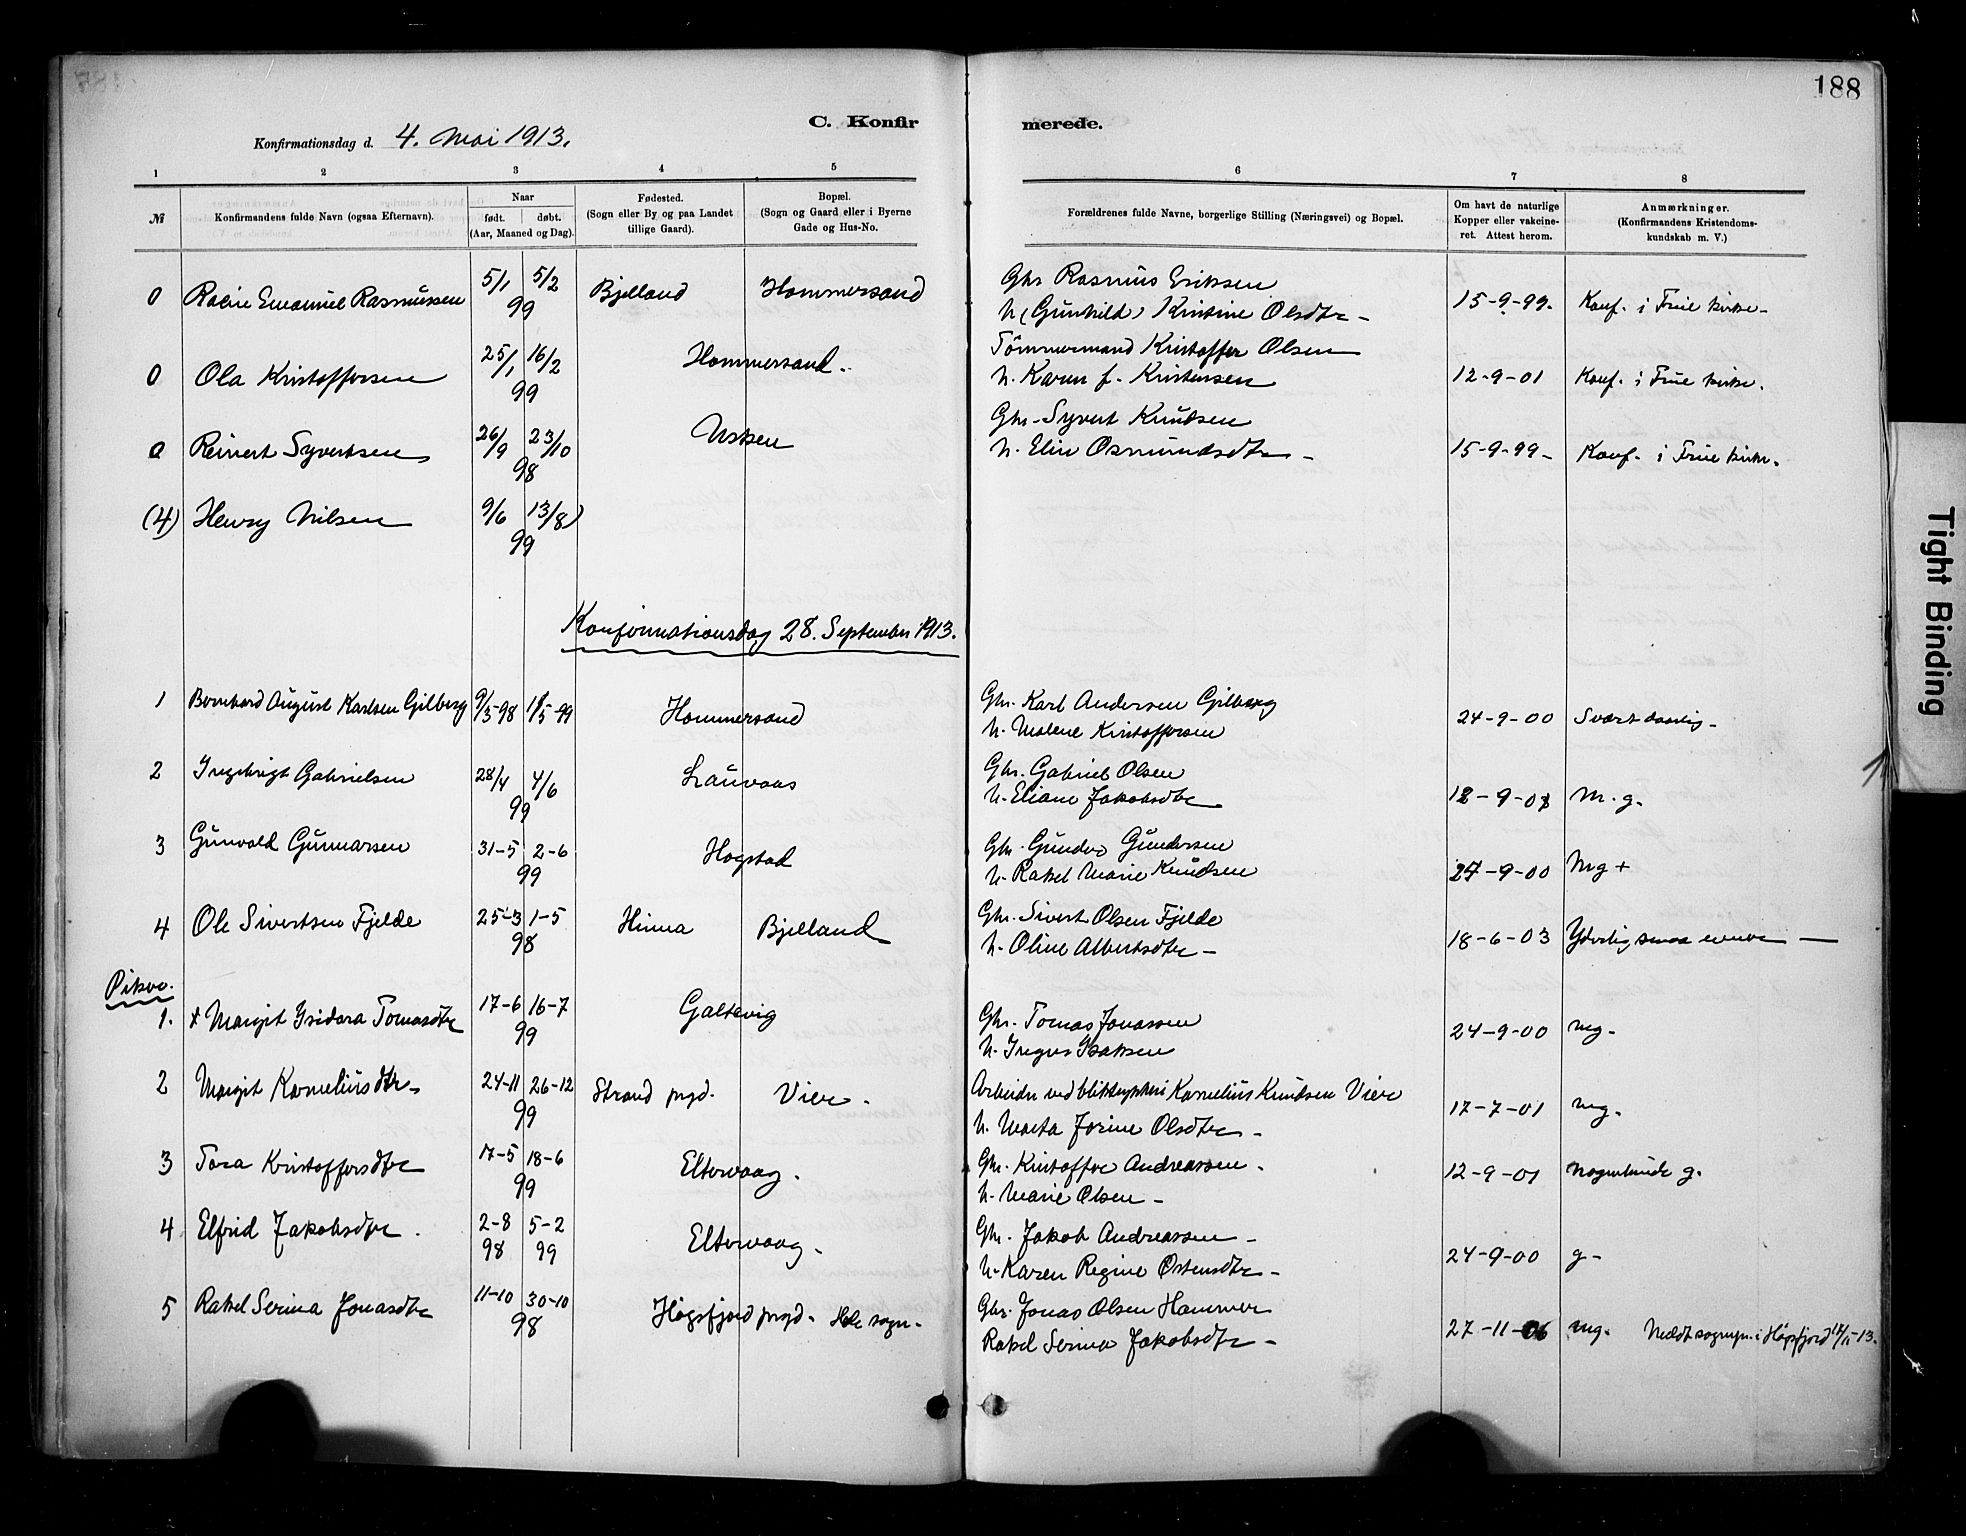 188
C. Konfir merede.
Konfirmationsdag d. 4. Mai 1913.
1 2 3 4 5 6 7 8
№ Konfirmandens fulde Navn (ogsaa Efternavn). Naar født. døbt. (Aar, Maaned og Dag). Fødested. (Sogn eller By og paa Landet tillige Gaard). Bopæl. (Sogn og Gaard eller i Byerne Gade og Hus-No. Forældrenes fulde Navne, borgerlige Stilling (Næringsvei) og Bopæl. Om havt de naturlige Kopper eller vakcineret. Attest herom. Anmærkninger. (Konfirmandens Kristendomskundskab m. V.)
0 Emanuel Rasmussen 5/1 5/2 99 Bjelland Hommersand Gbr Rasmus Eriksen
h. (Gunhild) Kristine Olsdtr - 15-9-99. Konf. i Frue kirke -
0 Ola Kristoffersen 25/1 16/2 99 Hommersand. Tömmermand Kristoffer Olsen
h. Karen f. Kristensen 12-9-01 Konf. i Frue kirke.
0 Reinert Syvertsen 26/9 23/10 98 Usken Gbr. Syvert Knudsen
h. Elin Osmundsdtr - 15-9-99 - Konf. i Frue kirke.
(4) Henry Nilsen 9/6 13/8) 99
Konfirmationsdag 28. September 1913.
1 Bernhard August Karlsen Gilberg 9/3-98 1/5-99 Hommersand Gbr. Karl Andersen Gilberg
h. Malene Kristoffersen 24-9-00 Svært daarlig -
2 Ingebrigt Gabrielsen 28/4 4/6 99 Lauvaas Gbr. Gabriel Olsen
h. Eliane Jakobsdtr 12-9-01 M.g.
3 Gunvald Gunnarsen 31-5 2-6 99 Hogstad Gbr. Gunder Gundersen
h. Rakel Marie Knudsen 24-9-00 Mg +
4 Ole Sivertsen Fjelde 25-3 1-5 98 Hinna Bjelland Gbr. Sivert Olsen Fjelde
h. Oline Albertsdtr - 18-6-03 Yderlig smaa evner -
Piker.
1. + Margit Isidora Tomasdtr 17-6 16-7 99 Galtevig Gbr. Tomas Jonassen
h. Inger Isaksen 24-9-00 mg.
2 Margit Korneliusdtr - 24-11 26-12 99 Strand prgd. Vier. Arbeider ved Kornelius Knudsen Vier
h. Marta Jorine Olsdtr - 17-7-01 mg.
3 Tora Kristoffersdtr 17-5 18-6 99 Eltervaag. Gbr. Kristoffer Andreassen.
h. Marie Olsen - 12-9-01 nogenlunde g.
4 Elfrid Jakobsdtr. 2-8 98 5-2 99 Eltervaag. Gbr. Jakob Andreassen -
h. Karen Regine Ostensdtr - 24-9-00 g -
5 Rakel Serina Jonasdtr 11-10 30-10 98 Høgsfjord prgd. Hole sogn. Gbr. Jonas Olsen Hammer
Rakel Serina Jakobsdtr - 27-11-06 mg. Meldt sognepr. i Høgsfjord 17/11-13.
Tight Binding